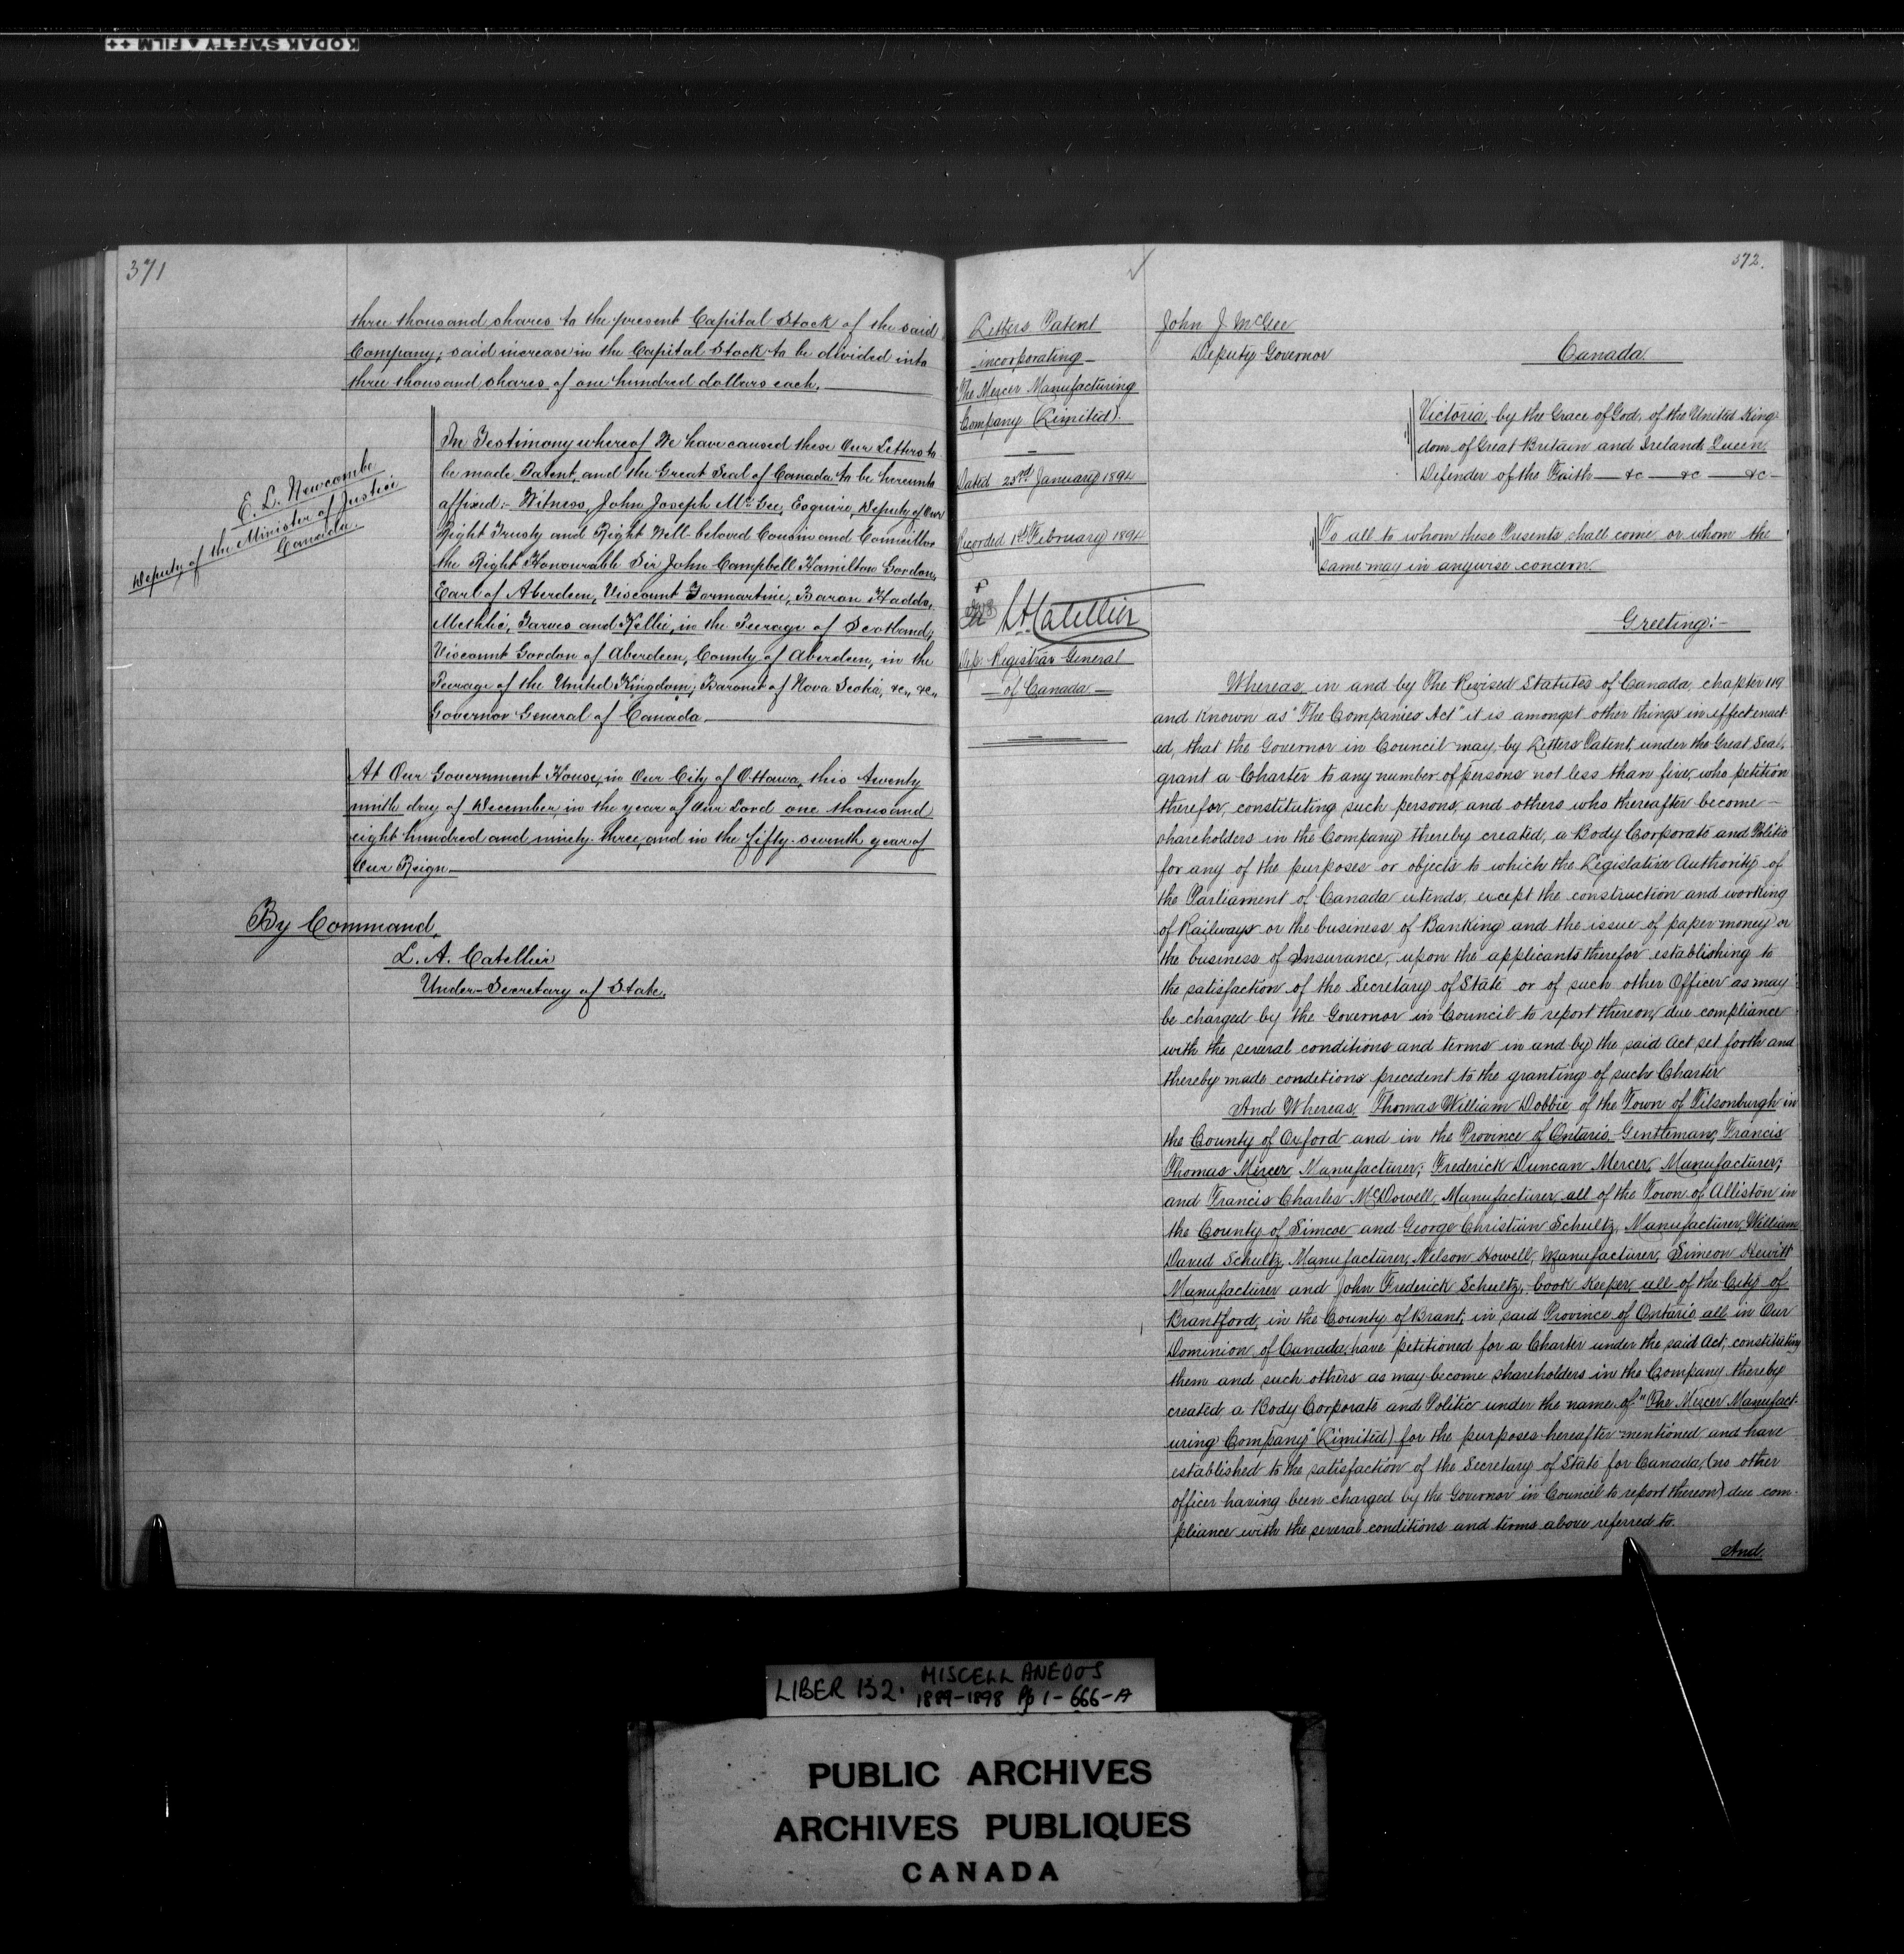 KODAK SAFETY FILM ++
371
three thousand shares to the present Capital Stock of the said
Company; said increase in the Capital Stock to be divided into
three thousand shares of one hundred dollars each.
E. L. Newcombe
Deputy of the Minister of Justice
Canada.
In Testimony whereof We have caused these Our Letters to
be made Patent, and the Great Seal of Canada to be hereunto
affixed:- Witness, John Joseph McGee, Esquire, Deputy of Our
Right Trusty and Right Well-beloved Cousin and Councillor
the Right Honourable Sir John Campbell Hamilton Gordon,
Earl of Aberdeen, Viscount Formartine, Baron Haddo,
Methlic, Tarves and Kellie, in the Peerage of Scotland;
Viscount Gordon of Aberdeen, County of Aberdeen, in the
Peerage of the United Kingdom; Baronet of Nova Scotia, &c., &c.,
Governor General of Canada.
At Our Government House, in Our City of Ottawa, this twenty
ninth day of December, in the year of Our Lord one thousand
eight hundred and ninety-three, and in the fifty-seventh year of
Our Reign.
By Command,
L. A. Catellier
Under-Secretary of State.
372.
Letters Patent
incorporating
The Mercer Manufacturing
Company (Limited).
Dated 23rd January 1894
Recorded 1st February 1894
L A Catellier
Dep. Registrar General
of Canada
John J. McGee
Deputy Governor
Canada
Victoria, by the Grace of God, of the United King
dom of Great Britain and Ireland, Queen,
Defender of the Faith — &c — &c — &c —
To all to whom these Presents shall come or whom the
same may in anywise concern.
Greeting:-
Whereas in and by The Revised Statutes of Canada, chapter 119
and known as "The Companies Act" it is amongst other things in effect enact-
ed, that the Governor in Council may, by Letters Patent, under the Great Seal,
grant a Charter to any number of persons not less than five, who petition
therefor, constituting such persons, and others who thereafter become
shareholders in the Company thereby created, a Body Corporate and Politic
for any of the purposes or objects to which the Legislative Authority of
the Parliament of Canada extends, except the construction and working
of Railways or the business of Banking and the issue of paper money or
the business of Insurance, upon the applicants therefor establishing to
the satisfaction of the Secretary of State or of such other Officer as may
be charged by the Governor in Council to report thereon, due compliance
with the several conditions and terms in and by the said Act set forth and
thereby made conditions precedent to the granting of such Charter
And Whereas, Thomas William Dobbie, of the Town of Tilsonburgh in
the County of Oxford and in the Province of Ontario, Gentleman, Francis
Thomas Mercer, Manufacturer; Frederick Duncan Mercer, Manufacturer;
and Francis Charles McDowell, Manufacturer all of the Town of Alliston in
the County of Simcoe and George Christian Schultz, Manufacturer, William
David Schultz, Manufacturer, Nelson Howell, Manufacturer, Simeon Hewitt
Manufacturer and John Frederick Schultz, book keeper, all of the City of
Brantford, in the County of Brant, in said Province of Ontario all in Our
Dominion of Canada, have petitioned for a Charter under the said Act, constituting
them and such others as may become shareholders in the Company thereby
created a Body Corporate and Politic under the name of "The Mercer Manufact-
uring Company" (Limited) for the purposes hereafter mentioned and have
established to the satisfaction of the Secretary of State for Canada, (no other
officer having been charged by the Governor in Council to report thereon) due com-
pliance with the several conditions and terms above referred to.
And
LIBER 132. MISCELLANEOUS
1889-1898 Pp 1-666-A
PUBLIC ARCHIVES
ARCHIVES PUBLIQUES
CANADA